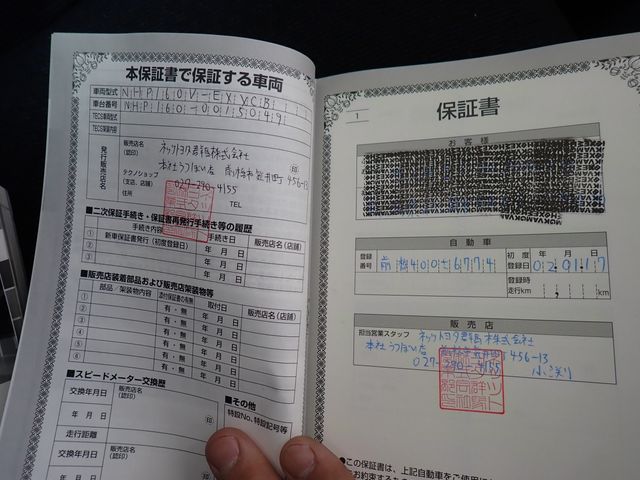 本保証書で保証する車両
車両型式 NHP160V-EXYCB
車台番号 NHP160-0015049
TECS車両型式
TECS架装内容
発行販売店名
販売店名
(認印)
ネッツトヨタ群馬株式会社
印
テクノショップ
(支店、店舗)
住所
本社うつぼい店 前橋市笂井町456-13
027-290-4155
TEL
■二次保証手続き・保証書再発行手続き等の履歴
手続き内容 手続き日 販売店名(店舗)
① 新車保証書発行(初度登録日) 年 月 日
② 年 月 日
③ 年 月 日
■販売店装着部品および販売店架装物等
部品/架装物内容 添付保証書の有無 取付日 販売店名(店舗)
① 有・無 年 月 日
② 有・無 年 月 日
③ 有・無 年 月 日
④ 有・無 年 月 日
⑤ 有・無 年 月 日
⑥ 有・無 年 月 日
■スピードメーター交換歴
交換年月日 販売店名
(認印)
年 月 日
印
走行距離
km
交換年月日 販売店名
(認印)
年 月 日
印
■その他
特設No.特設記号等
1
保証書
お客様
自動車
登録番号 前橋400 6774
初度登録日 年 月 日 02 01 17
登録時走行km km
販売店
担当営業スタッフ ネッツトヨタ群馬株式会社
本社うつぼい店 前橋市笂井町456-13
027-290-4155
●この保証書は、上記自動車をご使用に